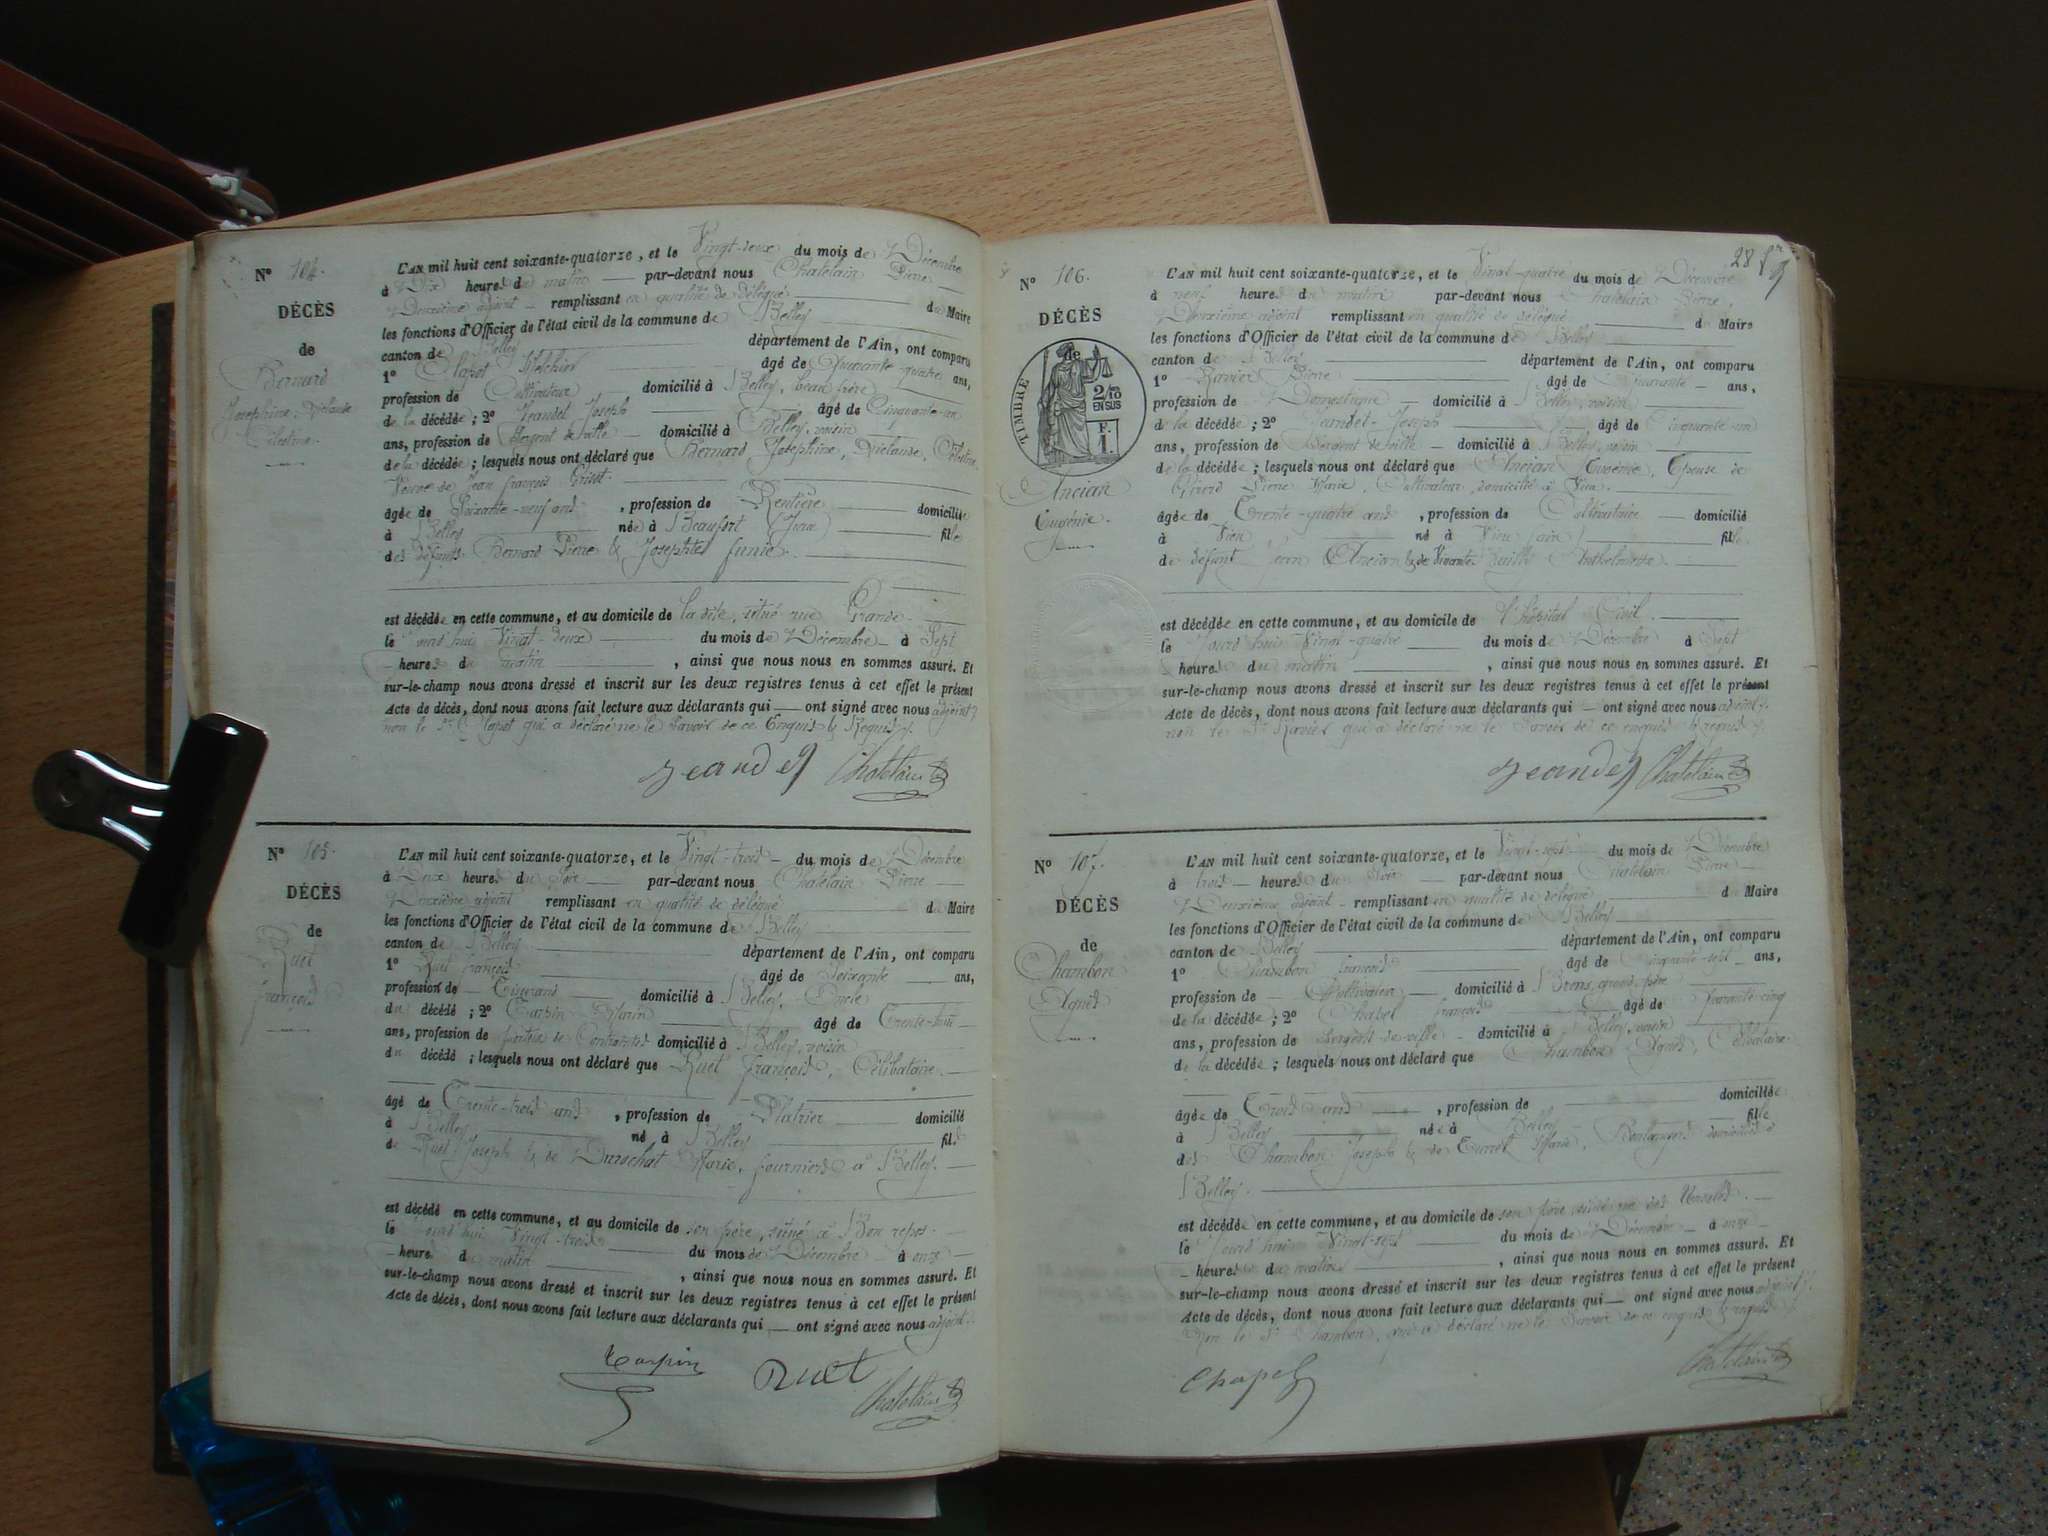 N° 104.
DÉCÈS
de
Bernard
Josephine, Diclaude
Célestine.
L'AN mil huit cent soixante-quatorze, et le Vingt-deux du mois de Décembre
à Dix heures du matin par-devant nous Chatelain Pierre
Deuxième adjoint remplissant en qualité de délégué du Maire
les fonctions d'Officier de l'état civil de la commune de Belley
canton de Belley département de l'Ain, ont comparu
1° Clapot Melchior âgé de Quarante quatre ans,
profession de Cultivateur domicilié à Belley, beau frère
de la décédée ; 2° Jeandet Joseph âgé de Cinquante-un
ans, profession de Sergent de ville domicilié à Belley, voisin
de la décédée ; lesquels nous ont déclaré que Bernard Josephine, Diclaude, Célestine,
Veuve de Jean françois
âgée de Soixante-neuf ans , profession de Rentière domiciliée
à Belley née à Beaufort (Jura) fille
des défunts Bernard Pierre &
est décédée en cette commune, et au domicile de la dite, situé rue Grande
le jourd'hui Vingt-deux du mois de Décembre à Sept
heures du matin , ainsi que nous nous en sommes assuré. Et
sur-le-champ nous avons dressé et inscrit sur les deux registres tenus à cet effet le présent
Acte de décès, dont nous avons fait lecture aux déclarants qui ont signé avec nous adjoint
non le Sr Clapot qui a déclaré ne le savoir de ce Enquis & Requis
Jeandet Chatelain
N° 105.
DÉCÈS
de
Ruet
françois
L'AN mil huit cent soixante-quatorze, et le Vingt-trois du mois de Décembre
à Deux heures du Soir par-devant nous Chatelain Pierre
Deuxième adjoint remplissant en qualité de délégué du Maire
les fonctions d'Officier de l'état civil de la commune de Belley
canton de Belley département de l'Ain, ont comparu
1° Ruet françois âgé de Soixante ans,
profession de Tisserand domicilié à Belley, Oncle
du décédé ; 2° Tarpin Hilarin âgé de Trente-huit
ans, profession de domicilié à Belley, voisin
du décédé ; lesquels nous ont déclaré que Ruet françois, Célibataire
âgé de Trente-trois ans , profession de Platrier domicilié
à Belley né à Belley fils
de Ruet Joseph & de Durochat Marie, fourniers à Belley.
est décédé en cette commune, et au domicile de son père, situé à Bon repos
le jourd'hui Vingt-trois du mois de Décembre à onze
heures du matin , ainsi que nous nous en sommes assuré. Et
sur-le-champ nous avons dressé et inscrit sur les deux registres tenus à cet effet le présent
Acte de décès, dont nous avons fait lecture aux déclarants qui ont signé avec nous adjoint
Tarpin Ruet Chatelain
28
N° 106.
DÉCÈS
de
TIMBRE
2/10
EN SUS
F.
1.
Ancian
Eugénie.
L'AN mil huit cent soixante-quatorze, et le Vingt-quatre du mois de Décembre
à neuf heures du matin par-devant nous Chatelain Pierre,
Deuxième adjoint remplissant en qualité de délégué du Maire
les fonctions d'Officier de l'état civil de la commune de Belley
canton de Belley département de l'Ain, ont comparu
1° Ravier Pierre âgé de Quarante ans,
profession de Domestique domicilié à Belley, voisin
de la décédée ; 2° Jeandet Joseph âgé de Cinquante un
ans, profession de Sergent de ville domicilié à Belley, voisin
de la décédée ; lesquels nous ont déclaré que Ancian Eugénie, Epouse de
Pierre Marie, Cultivateur, domicilié à Vieu
âgée de Trente-quatre ans , profession de Cultivatrice domicilié
à Vieu né à Vieu (Ain) fille
de défunt Jean Ancian & de vivante Anthelmette
est décédée en cette commune, et au domicile de l'hôpital Civil
le jourd'hui Vingt-quatre du mois de Décembre à Sept
heures du matin , ainsi que nous nous en sommes assuré. Et
sur-le-champ nous avons dressé et inscrit sur les deux registres tenus à cet effet le présent
Acte de décès, dont nous avons fait lecture aux déclarants qui ont signé avec nous adjoint
non le Sr Ravier qui a déclaré ne le savoir de ce enquis & requis
Jeandet Chatelain
N° 107.
DÉCÈS
de
Chambon
Agnès
L'AN mil huit cent soixante-quatorze, et le Vingt-sept du mois de Décembre
à trois heures du Soir par-devant nous Chatelain Pierre
Deuxième adjoint remplissant en qualité de délégué du Maire
les fonctions d'Officier de l'état civil de la commune de Belley
canton de Belley département de l'Ain, ont comparu
1° Chambon françois âgé de Cinquante-sept ans,
profession de Cultivateur domicilié à Brens, grand père
de la décédée ; 2° Chapel françois âgé de Quarante-cinq
ans, profession de Sergent de ville domicilié à Belley, voisin
de la décédée ; lesquels nous ont déclaré que Chambon Agnès, Célibataire
âgée de Trois ans , profession de domiciliée
à Belley née à Belley fille
des Chambon Joseph & de Marie, Boulangers domiciliés à
Belley.
est décédée en cette commune, et au domicile de son père, situé rue des
le jourd'hui Vingt-sept du mois de Décembre à onze
heures du matin , ainsi que nous nous en sommes assuré. Et
sur-le-champ nous avons dressé et inscrit sur les deux registres tenus à cet effet le présent
Acte de décès, dont nous avons fait lecture aux déclarants qui ont signé avec nous adjoint
Non le Sr Chambon, qui a déclaré ne le savoir de ce enquis & requis
Chapel Chatelain